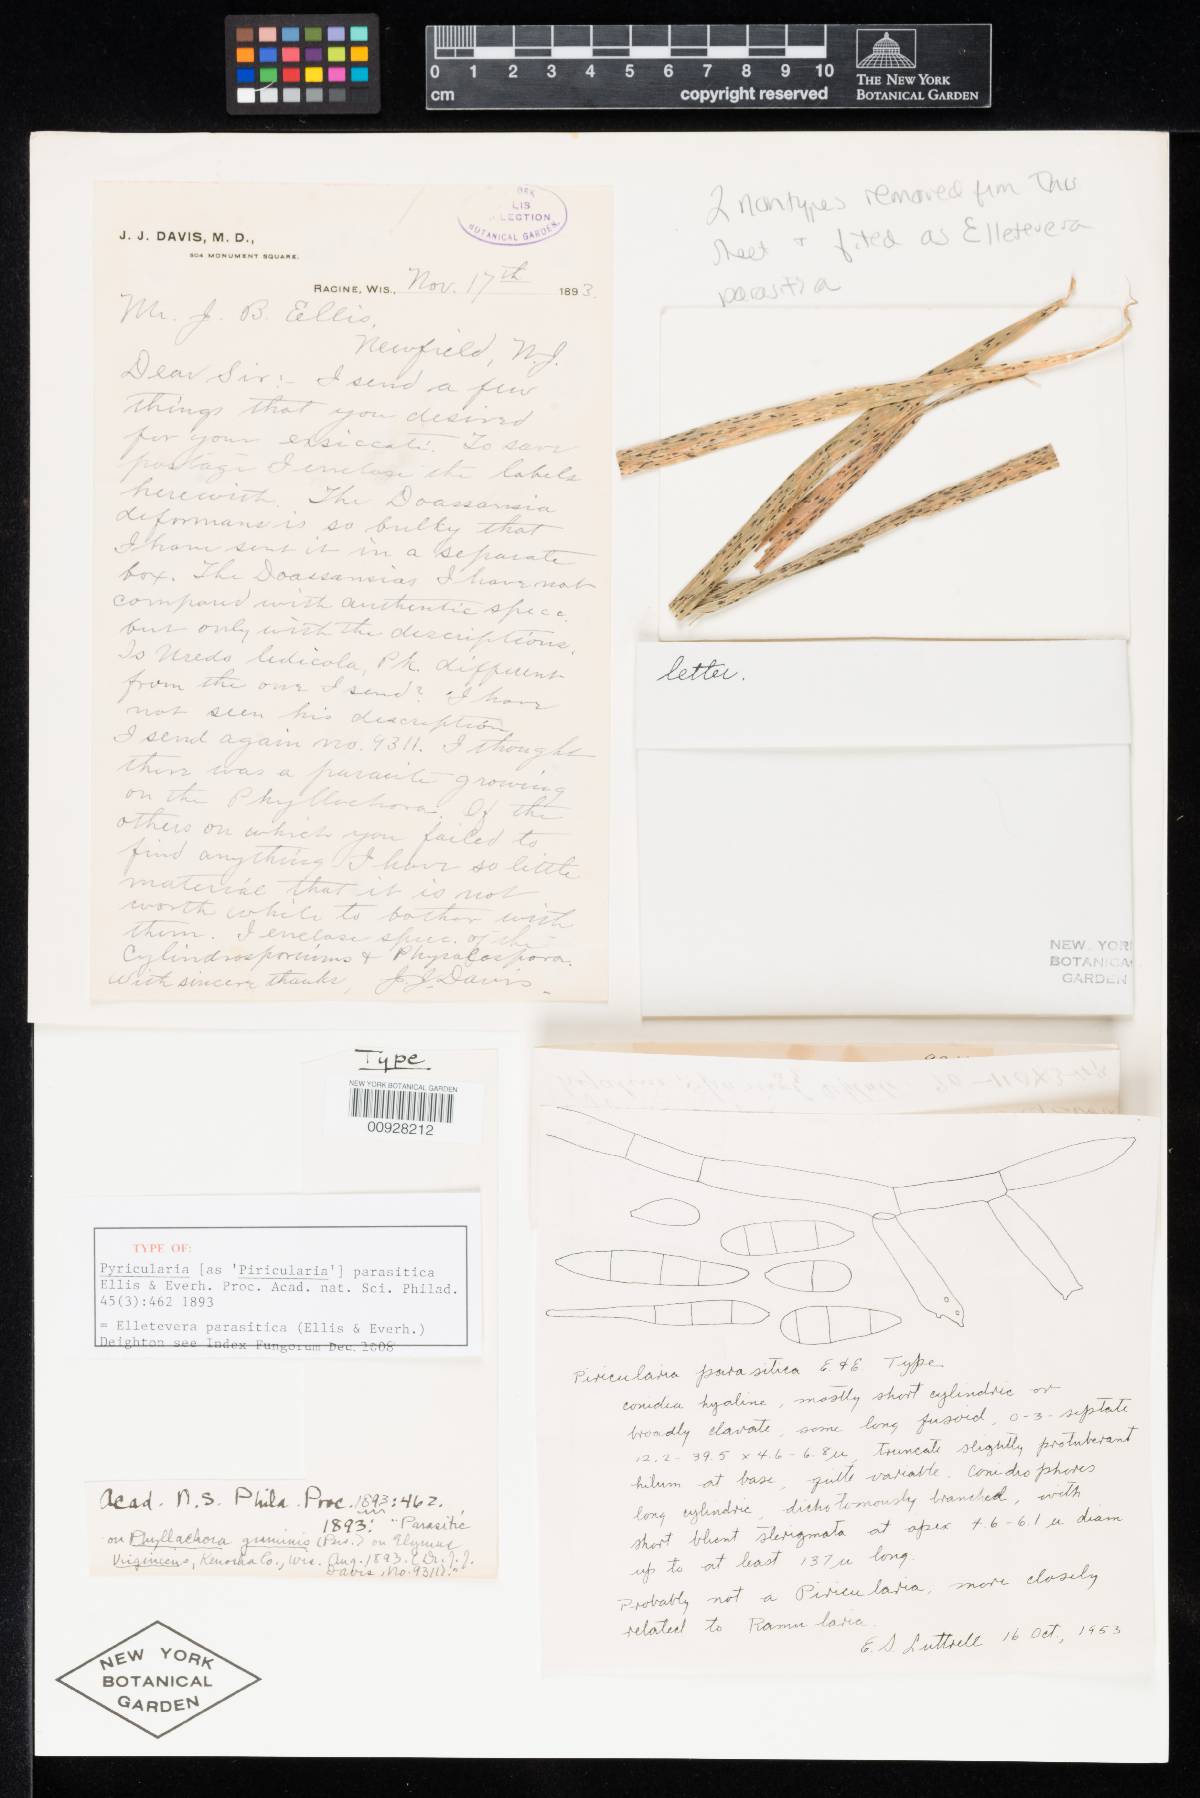 0 1 2 3 4 5 6 7 8 9 10
cm
copyright reserved
THE NEW YORK
BOTANICAL GARDEN
2 nontypes removed from this
sheet + filed as Elletevera
parasitica
LIS
LECTION
BOTANICAL GARDEN.
J. J. DAVIS, M. D.,
504 MONUMENT SQUARE.
RACINE, WIS., Nov. 17th 1893.
Mr. J. B. Ellis,
Newfield, N.J.
Dear Sir:- I send a few
things that you desired
for your exsiccati. To save
postage I enclose the labels
herewith. The Doassansia
deformans is so bulky that
I have sent it in a separate
box. The Doassansias I have not
compared with authentic spec.
but only with the descriptions.
Is Uredo ledicola, Pk. different
from the one I send? I have
not seen his description
I send again no. 9311. I thought
there was a parasite growing
on the Phyllachora. Of the
others on which you failed to
find anything I have so little
material that it is not
worth while to bother with
them. I enclose spec. of the
Cylindrosporiums & Physalospora.
With sincere thanks, J. J. Davis.
letter.
NEW YORK
BOTANICAL
GARDEN
Type
NEW YORK BOTANICAL GARDEN
00928212
TYPE OF:
Pyricularia [as 'Piricularia'] parasitica
Ellis & Everh. Proc. Acad. nat. Sci. Philad.
45(3):462 1893
= Elletevera parasitica (Ellis & Everh.)
Deighton see Index Fungorum Dec. 2008
Acad. N.S. Phila. Proc. 1893:462.
1893: "Parasitic
on Phyllachora graminis (Pers.) on Elymus
Virginicus, Kenosha Co., Wis. Aug. 1893. (Dr. J. J.
Davis, No. 9311)."
NEW YORK
BOTANICAL
GARDEN
Piricularia parasitica E. & E. Type
conidia hyaline, mostly short cylindric or
broadly clavate, some long fusoid, 0-3-septate
12.2-39.5 x 4.6-6.8 u, truncate slightly protuberant
hilum at base, quite variable. Conidiophores
long cylindric, dichotomously branched, with
short blunt sterigmata at apex 4.6-6.1 u diam
up to at least 137 u long.
Probably not a Piricularia, more closely
related to Ramularia.
E. S. Luttrell 16 Oct., 1953